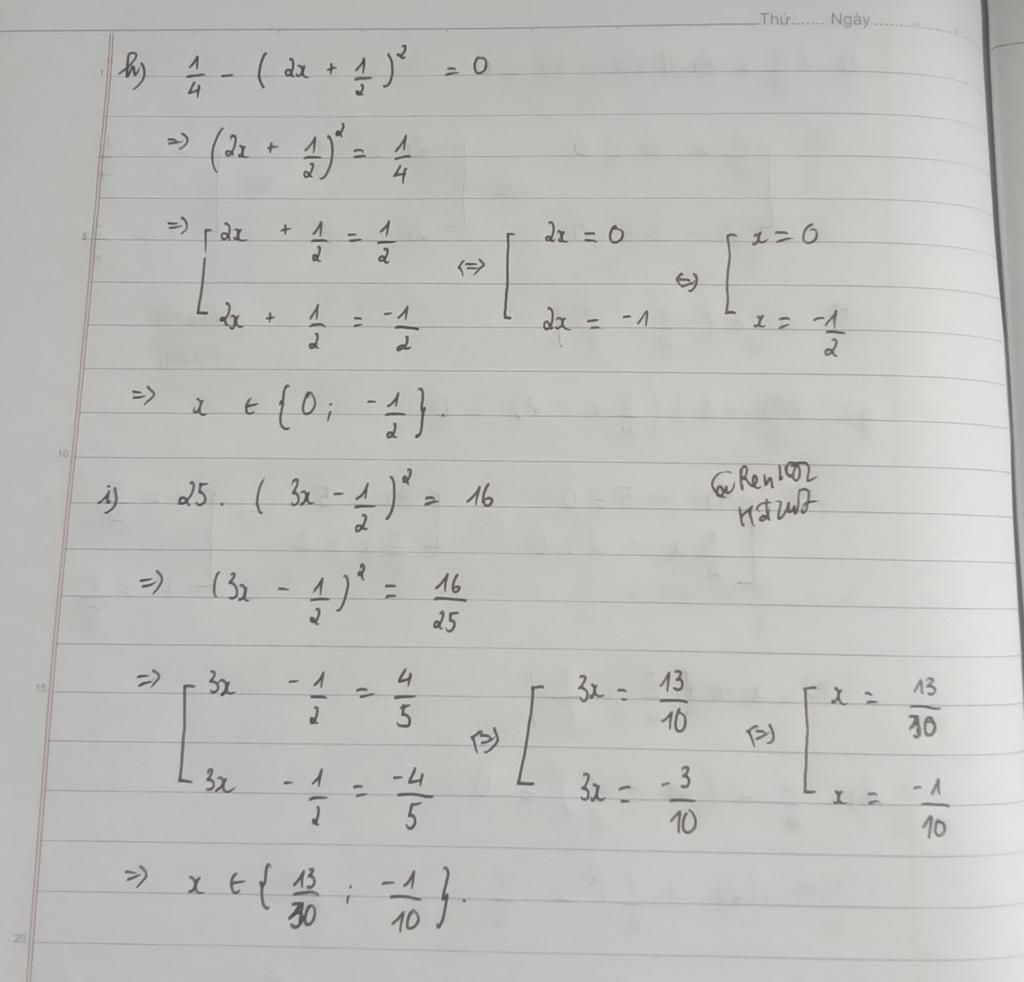 Thứ....... Ngày...............
h) 1/4 - (2x + 1/2)² = 0
=> (2x + 1/2)² = 1/4
5
=> [ 2x + 1/2 = 1/2 ; 2x + 1/2 = -1/2 <=> [ 2x = 0 ; 2x = -1 <=> [ x = 0 ; x = -1/2
=> x ∈ {0 ; -1/2}.
10
i) 25 . (3x - 1/2)² = 16
=> (3x - 1/2)² = 16/25
15
=> [ 3x - 1/2 = 4/5 ; 3x - 1/2 = -4/5 <=> [ 3x = 13/10 ; 3x = -3/10 <=> [ x = 13/30 ; x = -1/10
=> x ∈ {13/30 ; -1/10}.
20